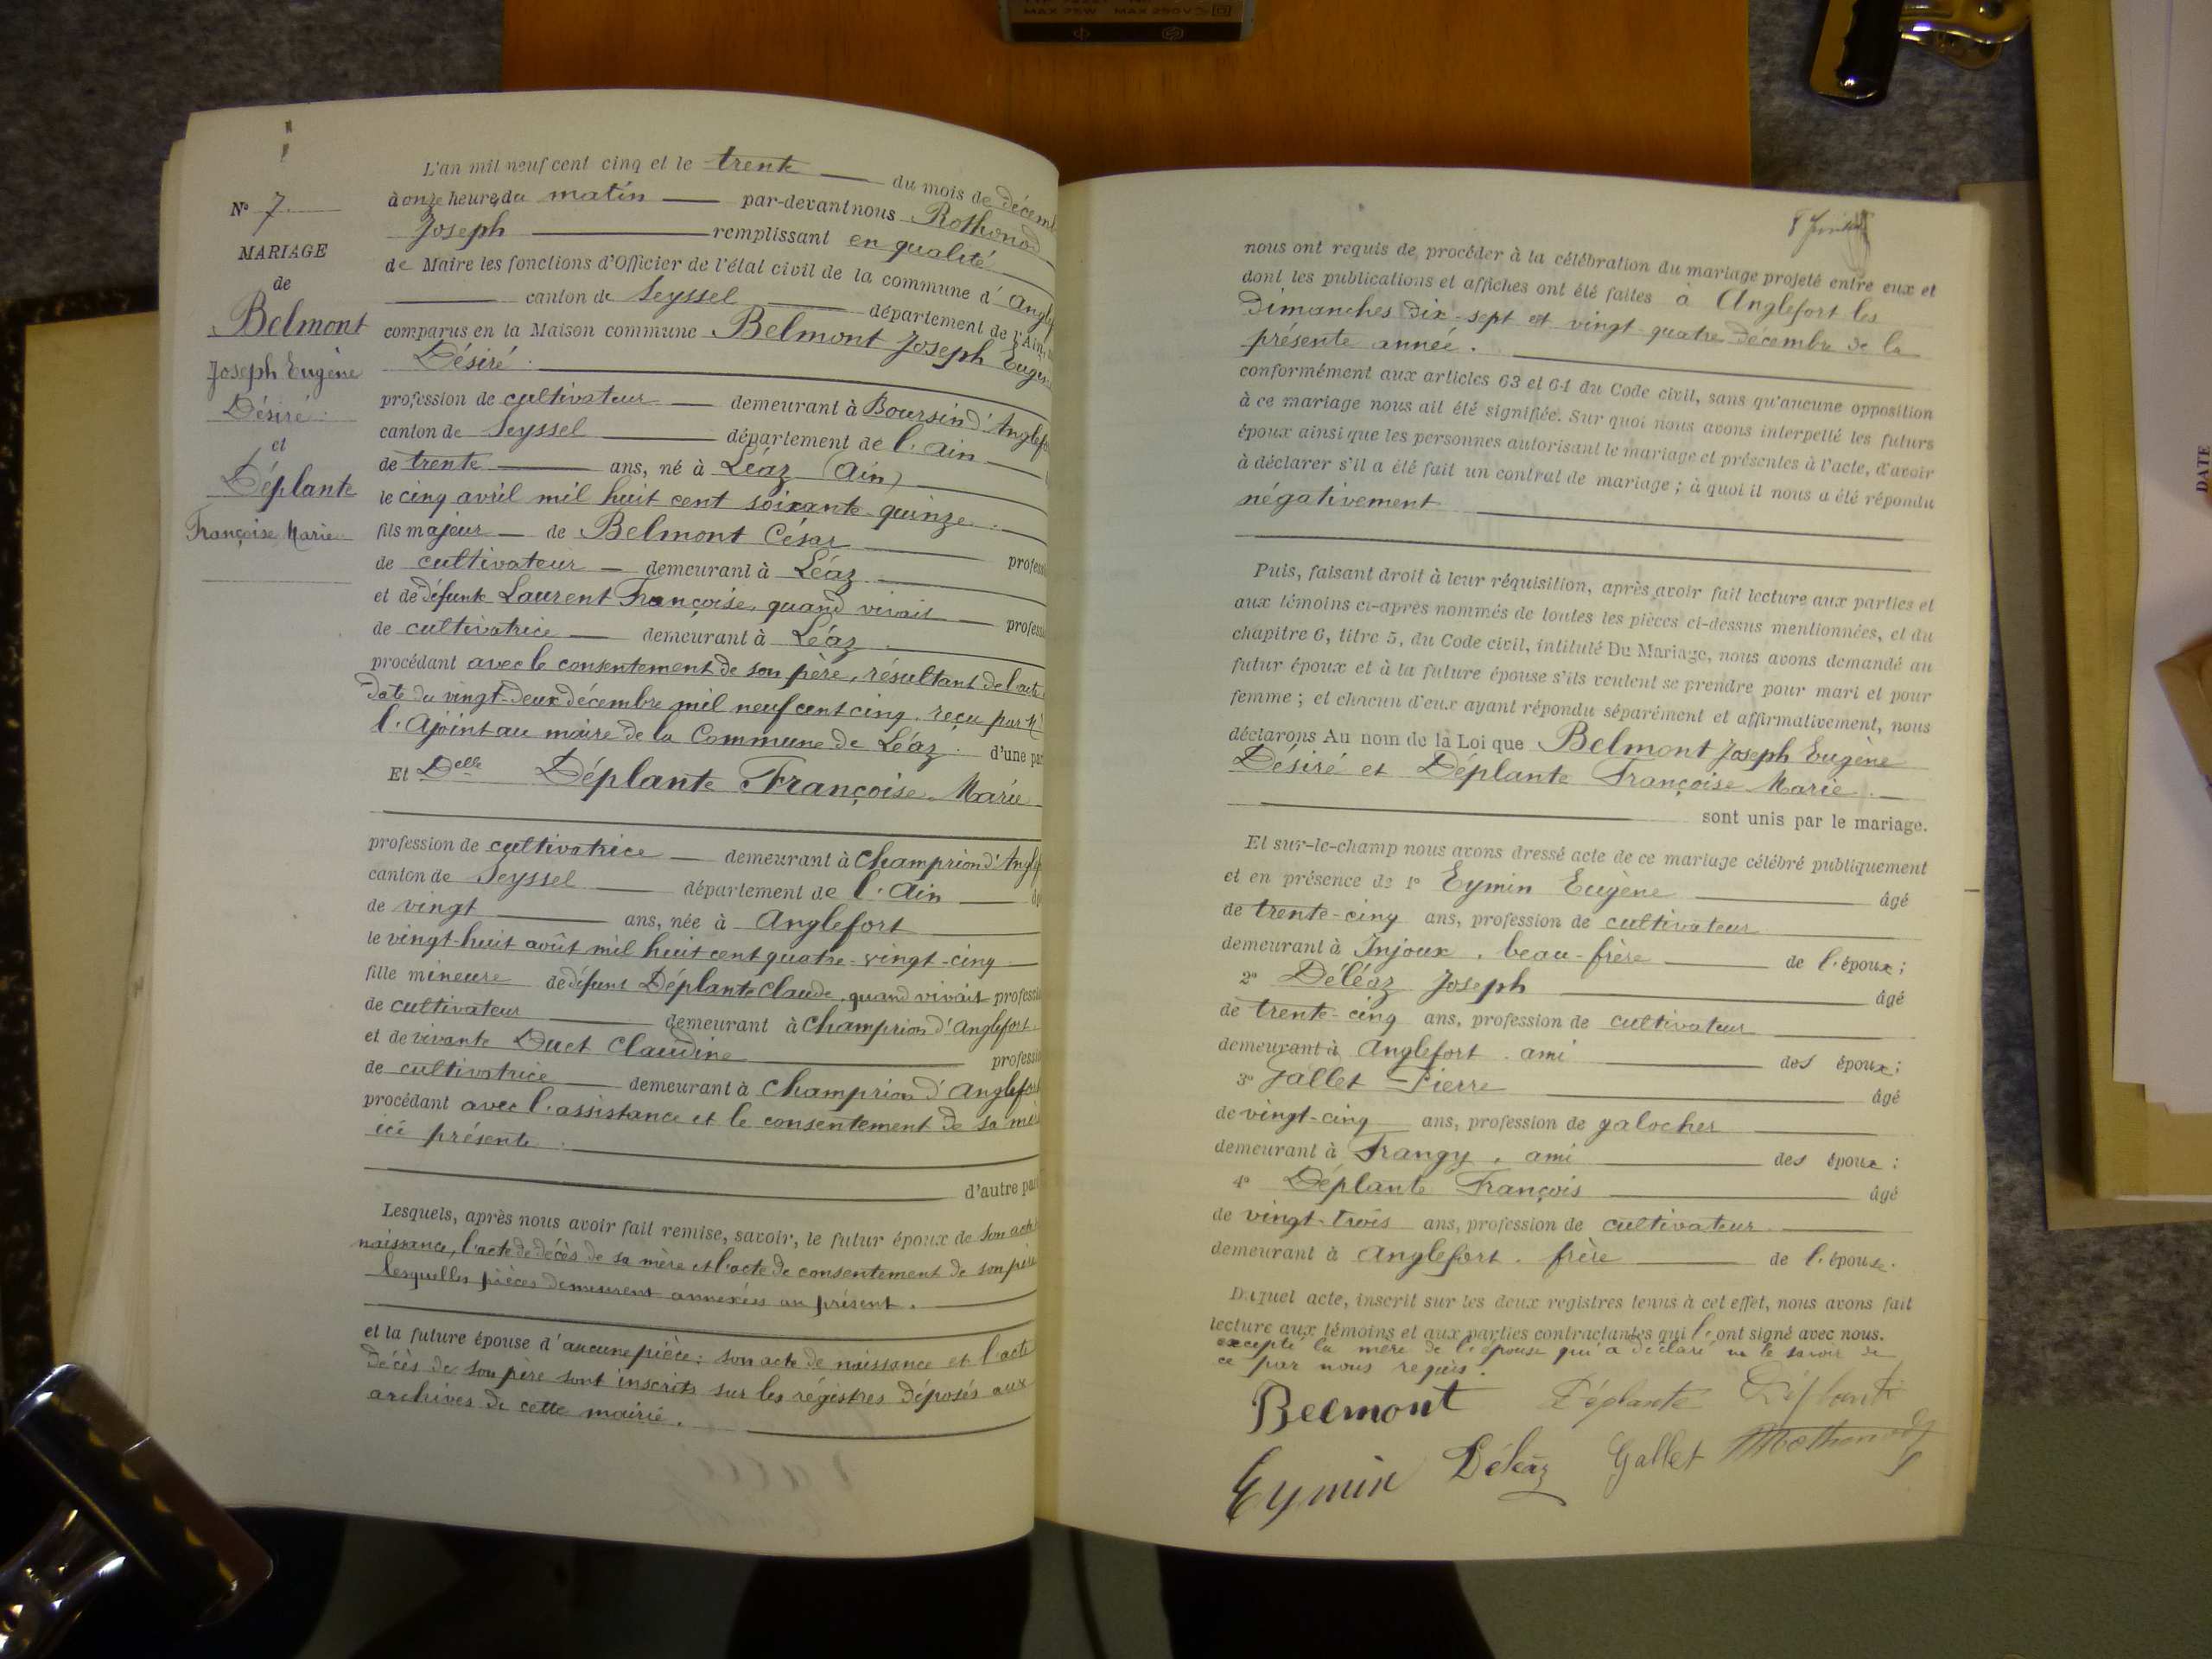 MAX 75W MAX 250V
N° 7.
MARIAGE
de
Belmont
Joseph Eugène
Désiré
et
Déplante
Françoise Marie
L'an mil neuf cent cinq et le trente du mois de décem
à onze heures du matin par-devant nous Rothonod
Joseph remplissant en qualité
de Maire les fonctions d'Officier de l'état civil de la commune d'Angle
canton de Seyssel département de l'Ain,
comparus en la Maison commune Belmont Joseph Eugè
Désiré
profession de cultivateur demeurant à Boursin d'Anglef
canton de Seyssel département de l'Ain
de trente ans, né à Léaz (Ain)
le cinq avril mil huit cent soixante-quinze.
fils majeur de Belmont César profess
de cultivateur demeurant à Léaz
et de défunte Laurent Françoise, quand vivait profess
de cultivatrice demeurant à Léaz
procédant avec le consentement de son père, résultant de l'acte
date du vingt-deux décembre mil neuf cent cinq. reçu par Mr
l'Ajoint au maire de la Commune de Léaz. d'une par
Et Delle Déplante Françoise Marie
profession de cultivatrice demeurant à Champrion d'Anglef
canton de Seyssel département de l'Ain
de vingt ans, née à Anglefort
le vingt-huit août mil huit cent quatre-vingt-cinq
fille mineure de défunt Déplante Claude, quand vivait professi
de cultivateur demeurant à Champrion d'Anglefort
et de vivante Duet Claudine professi
de cultivatrice demeurant à Champrion d'Anglefort
procédant avec l'assistance et le consentement de sa mè
ici présente.
d'autre par
Lesquels, après nous avoir fait remise, savoir, le futur époux de son acte
naissance, l'acte de décès de sa mère et l'acte de consentement de son père
lesquelles pièces demeurent annexées au présent.
et la future épouse d'aucune pièce: son acte de naissance et l'acte
décès de son père sont inscrits sur les régistres déposés aux
archives de cette mairie.
nous ont requis de procéder à la célébration du mariage projeté entre eux et
dont les publications et affiches ont été faites à Anglefort les
Dimanches dix-sept et vingt-quatre décembre de la
présente année.
conformément aux articles 63 et 64 du Code civil, sans qu'aucune opposition
à ce mariage nous ait été signifiée. Sur quoi nous avons interpellé les futurs
époux ainsi que les personnes autorisant le mariage et présentes à l'acte, d'avoir
à déclarer s'il a été fait un contrat de mariage ; à quoi il nous a été répondu
négativement
Puis, faisant droit à leur réquisition, après avoir fait lecture aux parties et
aux témoins ci-après nommés de toutes les pièces ci-dessus mentionnées, et du
chapitre 6, titre 5, du Code civil, intitulé Du Mariage, nous avons demandé au
futur époux et à la future épouse s'ils veulent se prendre pour mari et pour
femme ; et chacun d'eux ayant répondu séparément et affirmativement, nous
déclarons Au nom de la Loi que Belmont Joseph Eugène
Désiré et Déplante Françoise Marie.
sont unis par le mariage.
Et sur-le-champ nous avons dressé acte de ce mariage célébré publiquement
et en présence de 1° Eymin Eugène âgé
de trente-cinq ans, profession de cultivateur
demeurant à Injoux, beau-frère de l'époux ;
2° Déléaz Joseph âgé
de trente-cinq ans, profession de cultivateur
demeurant à Anglefort. ami des époux ;
3° Gallet Pierre âgé
de vingt-cinq ans, profession de galocher
demeurant à Frangy, ami des époux ;
4° Déplante François âgé
de vingt-trois ans, profession de cultivateur.
demeurant à Anglefort. frère de l'épouse.
Duquel acte, inscrit sur les deux registres tenus à cet effet, nous avons fait
lecture aux témoins et aux parties contractantes qui l'ont signé avec nous.
excepté la mère de l'épouse qui a déclaré ne le savoir de
ce par nous requis.
Belmont Déplante Déplante
Eymin Déléaz Gallet Rothonod
DATE